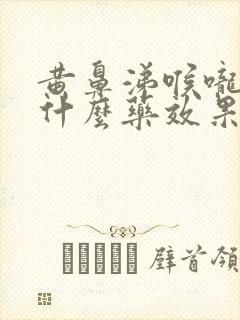 黄鼻涕喉嚨
什麼藥效果
壁首領